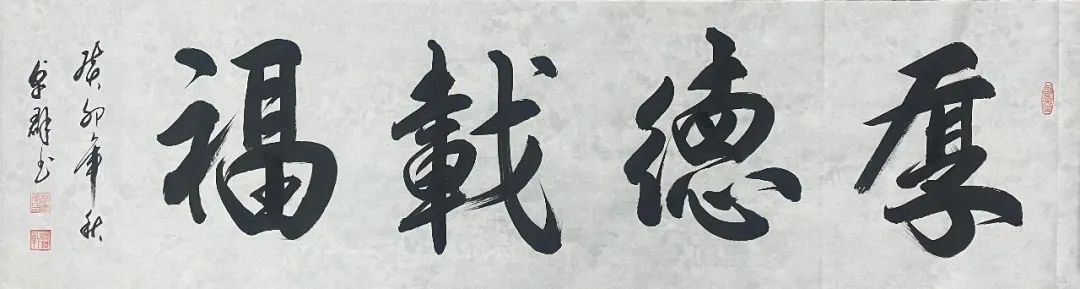 厚德載福
癸卯年秋
群书